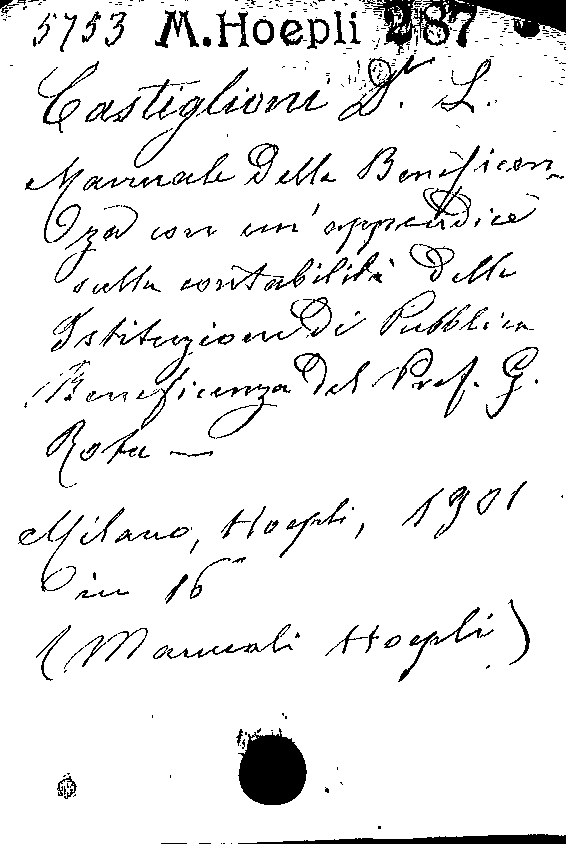 5753 M. Hoepli 287
Castiglioni Dr. L.
Manuale della Beneficen-
za con un' appendice
sulla contabilità delle
Istituzioni di Pubblica
Beneficenza del Prof. G.
Rota —
Milano, Hoepli, 1901
in 16
(Manuali Hoepli)